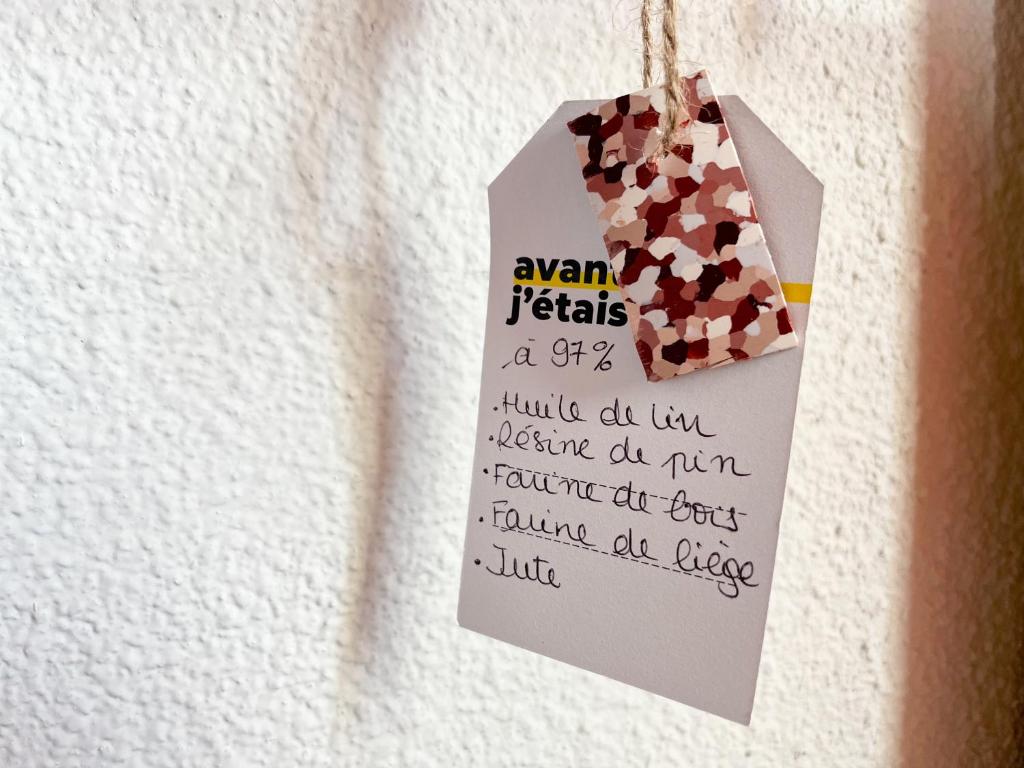 avant
j'étais
à 97%
• Huile de lin
• Résine de pin
• Farine de bois
• Farine de liège
• Jute